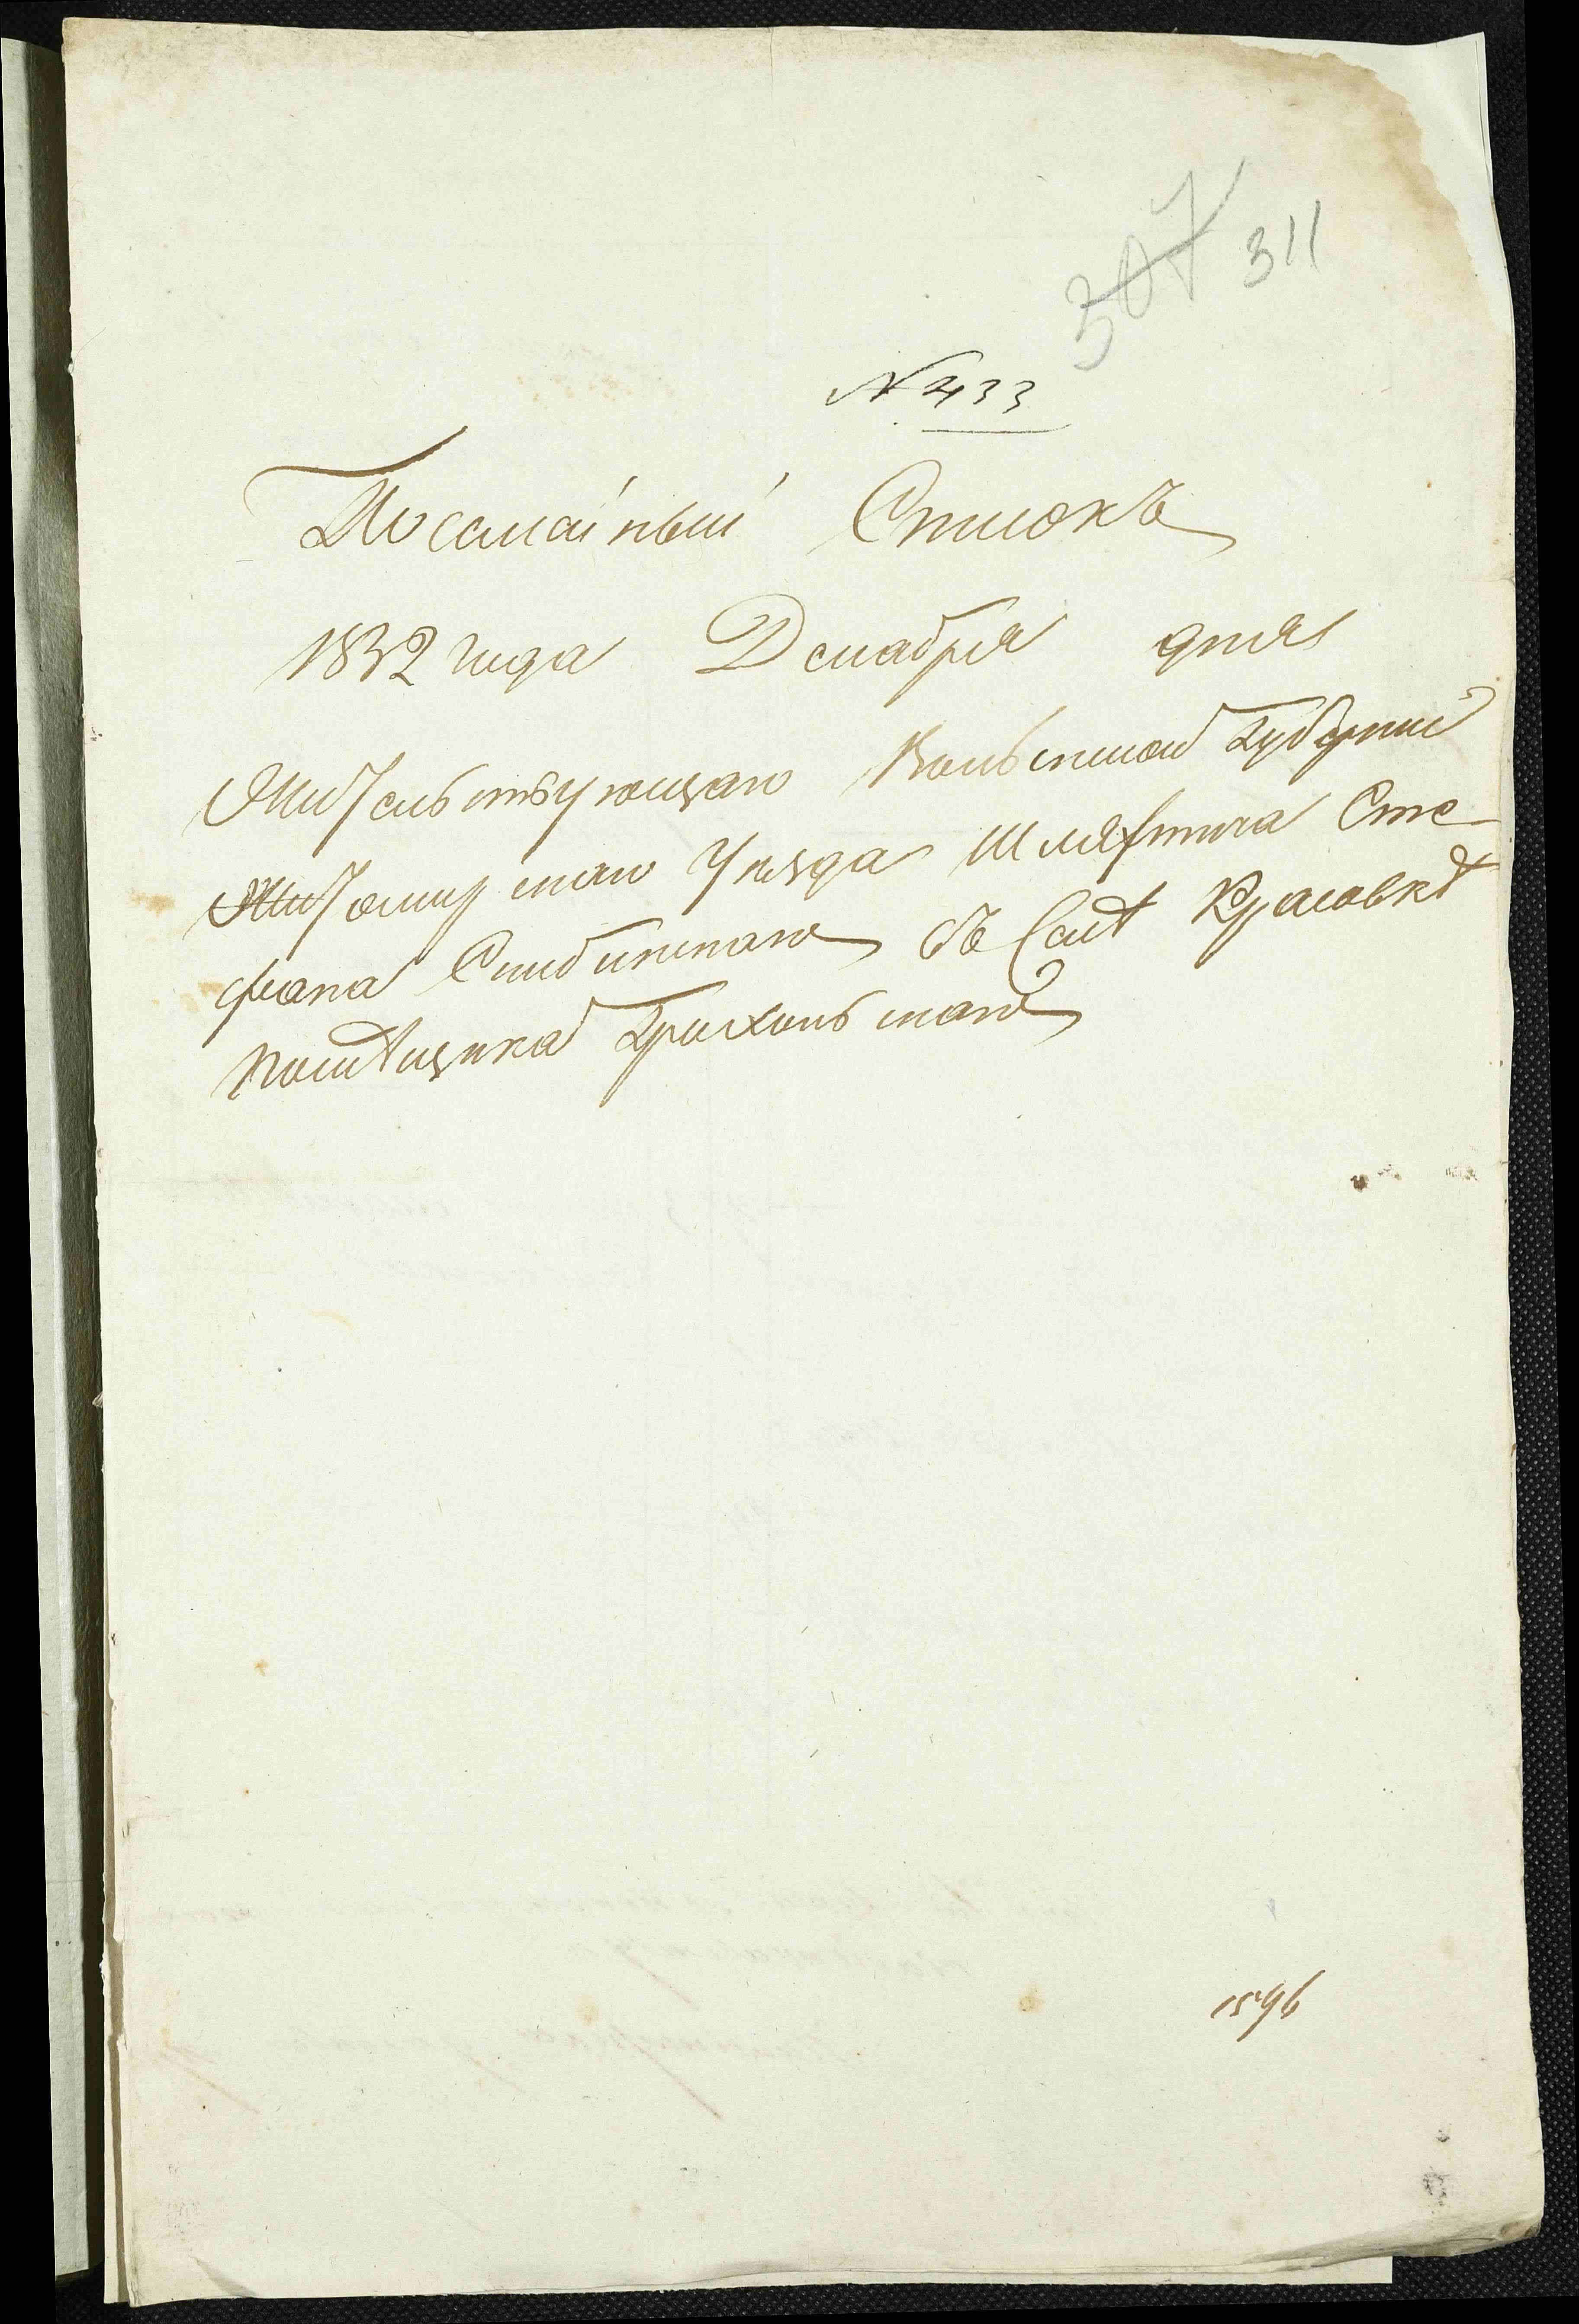 307 311
N 433
Посемейный Списокъ
1832 года Декабря дня
Жительствующаго Волынской Губерніи
Житомирскаго Уезда Шляхтича Сте
фана в Селѣ Красовкѣ
помѣщика Грохольскаго
1596